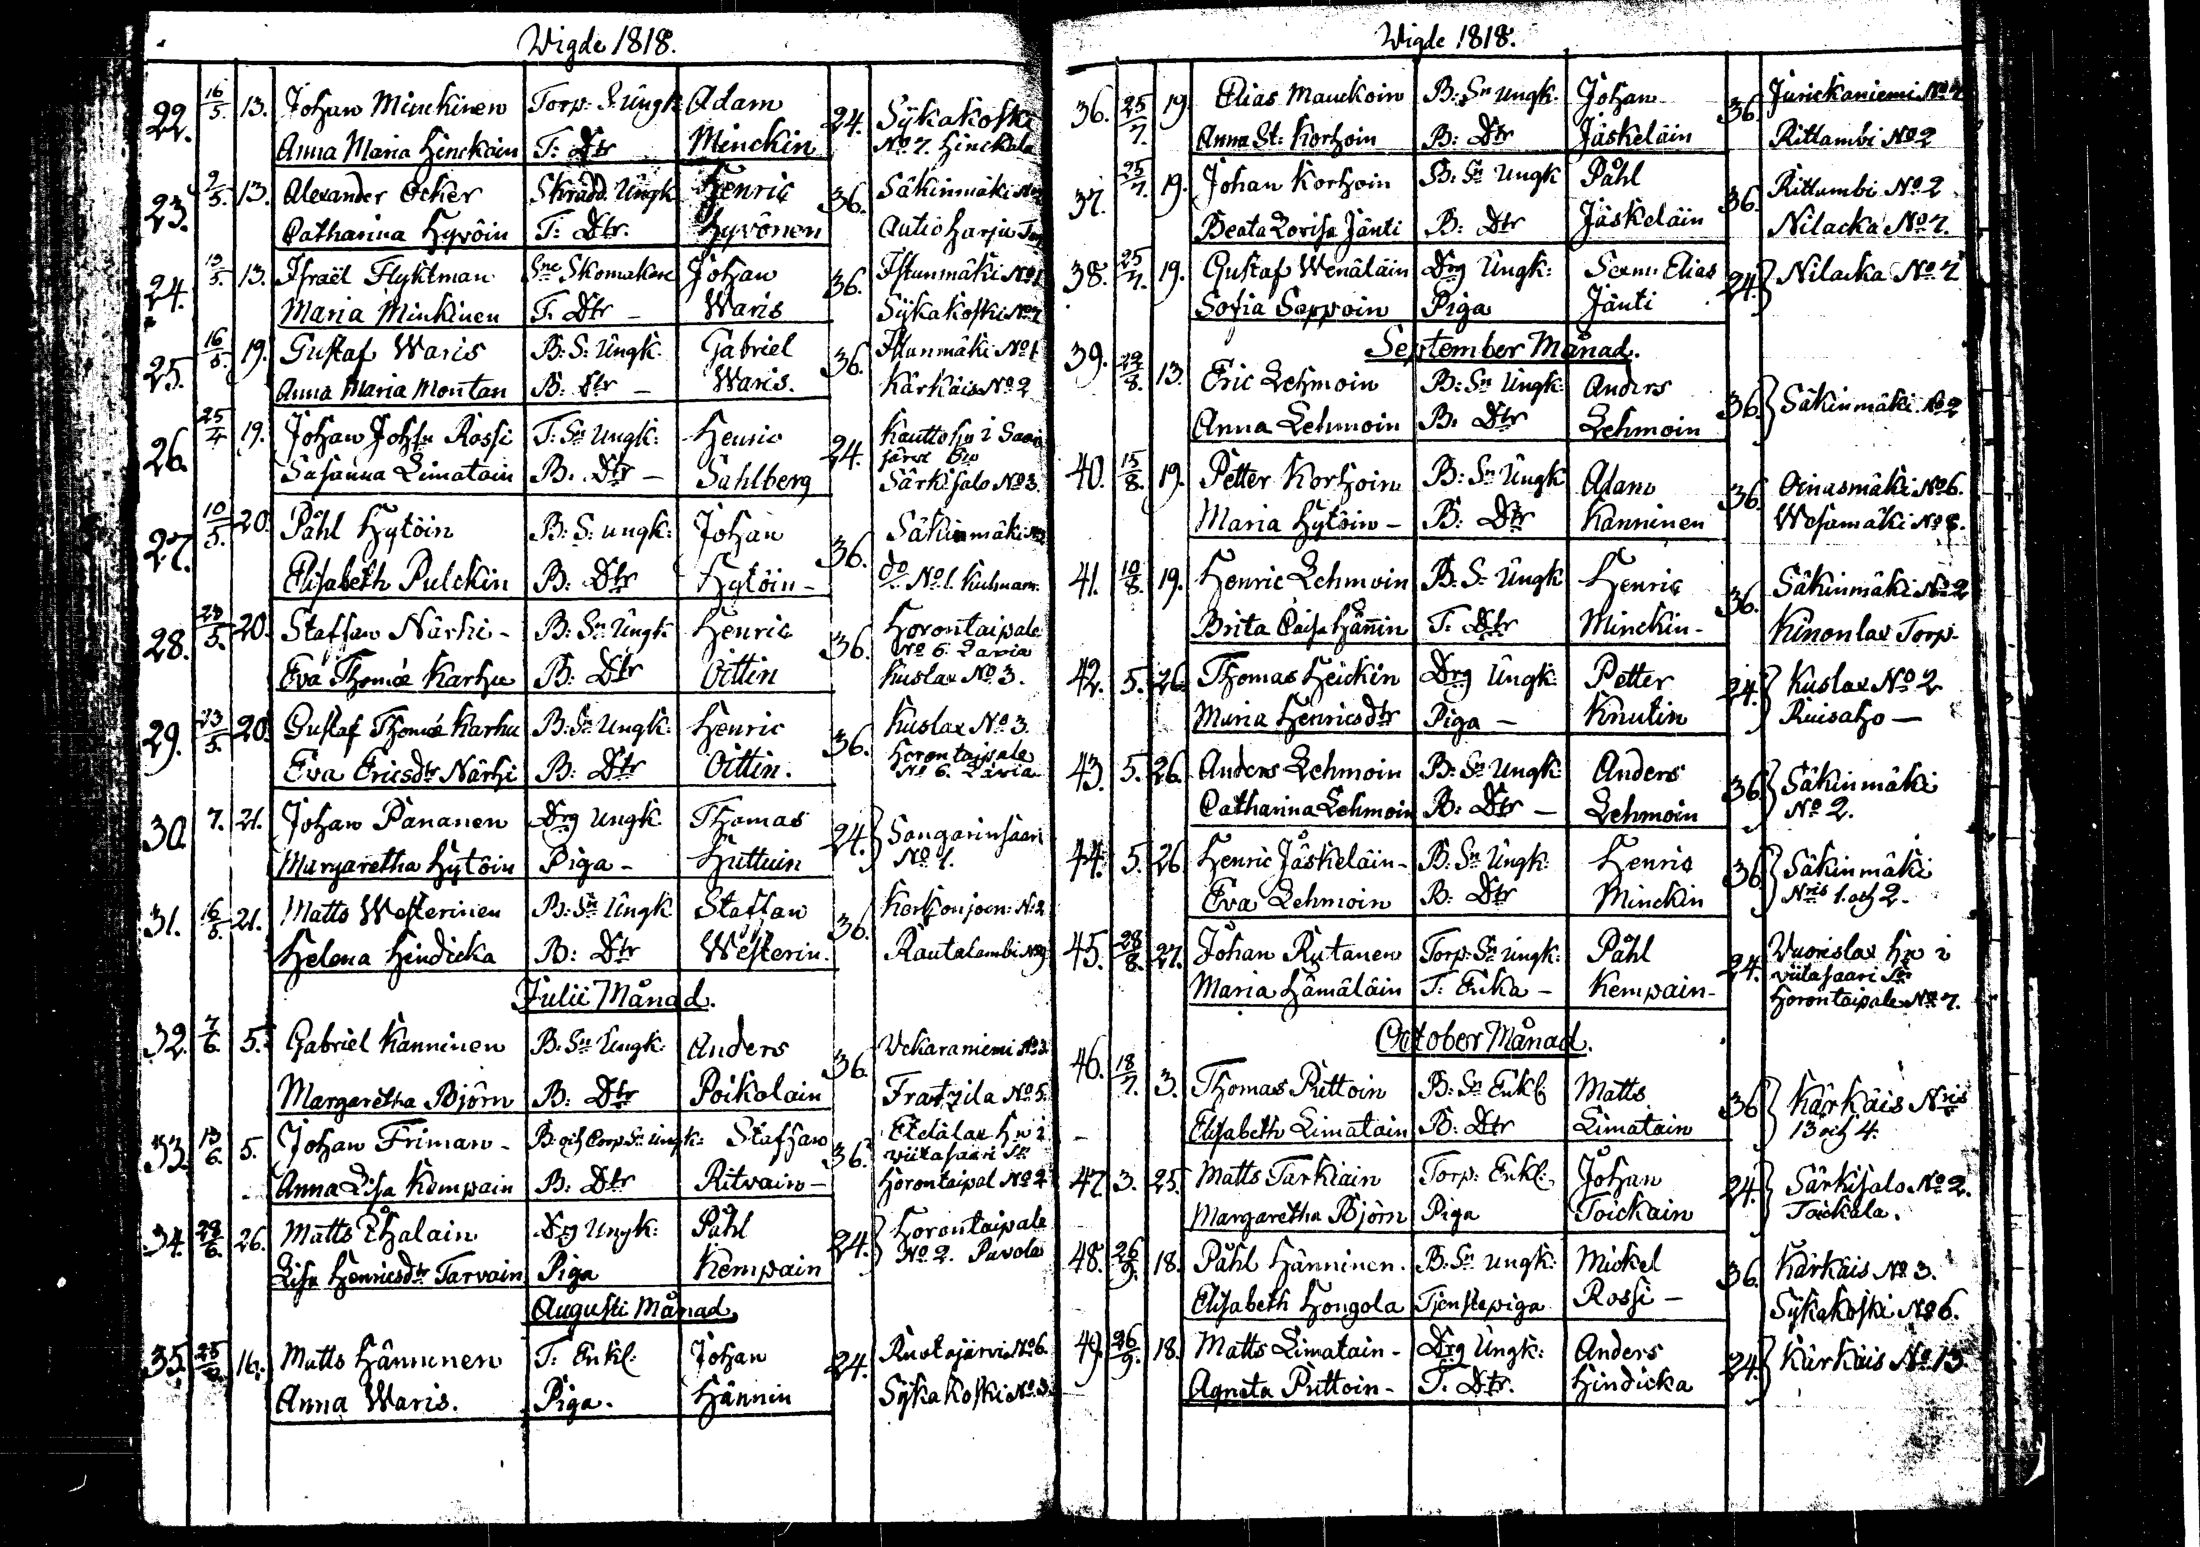 Wigde 1818.
22. 16/5. 13. Johan Minckinen Torp. S. Ungk. Adam 24. Sykäkoski
Anna Maria Hinckain T. Dtr Minckin No 7. Hinckala
23. 9/5. 13. Alexander Ocker Skrädd. Ungk Henric 36. Säkinmäki No 2
Catharina Hyvöin T: Dtr. Hyvönen Autioharju Torp
24. 13/5. 13. Israël Flyktman Sne Skomakare Johan 36. Istunmäki No 1
Maria Minkinen T. Dtr – Waris Sykäkoski No 7
25. 16/5. 19. Gustaf Waris B: S: Ungk. Gabriel 36. Istunmäki No 1
Anna Maria Montan B: Dtr – Waris. Kärkäis No 2
26. 25/4 19. Johan Johsn Rossi T: Sn Ungk: Henric 24. Kautto hn i Saari
järvi Sn
Susanna Limatain B. Dtr – Sahlberg Särkisalo No 3.
27. 10/5. 20. Påhl Hytöin B: S: ungk: Johan 36. Säkinmäki No 2
Elisabeth Pulckin B: Dtr Hytöin – do No 1. Kuhnam.
28. 23/5. 20. Staffan Närhi – B: Sn Ungk. Henric 36. Horontaipale
No 6. Lavia
Eva Thomæ Karhu B: Dtr Oittin Kuslax No 3.
29. 23/5. 20. Gustaf Thomæ Karhu B: Sn Ungk: Henric 36. Kuslax No 3.
Eva Ericsdtr Närhi B: Dtr Oittin. Horontaipale
No 6. Lavia
30. 7. 21. Johan Pananen Drg Ungk. Thomas 24. } Sangarinsaari
Margaretha Hytöin Piga – Huttuin No 1.
31. 16/5. 21. Matts Westerinen B: Sn Ungk Staffan 36. Kerkonjoen: No 2
Helena Hindicka B: Dtr Westerin. Rautalambi No 9
Julii Månad.
32. 7/6. 5. Gabriel Kanninen B. Sn Ungk: Anders 36. Vckaraniemi No 3.
Margaretha Björn B: Dtr Poikolain Fratzila No 5.
33. 13/6. 5. Johan Friman – B. och Torp Sn Ungk: Staffan 36. Etelälax hn i
viitasaari Sn
Anna Lisa Kempain B: Dtr Ritvain – Horontaipal No 2
34. 28/6. 26. Matts Ihalain Drg Ungk: Påhl 24. } Horontaipale
Lisa Henricsdtr Tarvain Piga Kempain No 2. Pavola
Augusti Månad.
35. 16. Matts Hänninen T: Enkl: Johan 24. Ruotajärvi No 6.
Anna Waris. Piga. Hännin Sykäkoski No 3.
Wigde 1818.
36. 25/7. 19 Elias Manckoin B: Sn Ungk. Johan 36. Jurickaniemi No 4
Anna St: Korhoin B: Dtr Jäskeläin Rittambi No 2
37. 25/7. 19. Johan Korhoin B: Sn Ungk Påhl 36. Rittambi No 2
Beata Lovisa Jänti B: Dtr Jäskeläin Nilacka No 7.
38. 25/7. 19. Gustaf Wenäläin Drg Ungk: Elias 24. } Nilacka No 7
Sofia Seppoin Piga Jänti
September Månad.
39. 29/8. 13. Eric Lehmoin B: Sn Ungk: Anders 36. } Säkinmäki. No 2
Anna Lehmoin B: Dtr Lehmoin
40. 15/8. 19. Petter Korhoin B: Sn Ungk Adam 36. Oinasmäki No 6.
Maria Hytöin – B: Dtr Kanninen Wesamäki No 8.
41. 10/8. 19. Henric Lehmoin B: S: Ungk Henric 36. Säkinmäki No 2
Brita Caisa Hännin T: Dtr Minckin – Kinonlax Torp.
42. 5. 26. Thomas Heickin Drg Ungk: Petter 24. } Kuslax No 2
Maria Henricsdtr Piga – Knutin Ruisaho –
43. 5. 26. Anders Lehmoin B: Sn Ungk: Anders 36. } Säkinmäki
Catharina Lehmoin B: Dtr – Lehmoin No 2.
44. 5. 26 Henric Jäskeläin – B: Sn Ungk: Henric 36. } Säkinmäki
Eva Lehmoin B: Dtr Minckin Nris 1. och 2.
45. 28/8. 27. Johan Rutanen Torp. Sn ungk: Påhl 24. Vuorislax hn i
viitasaari Sn
Maria Hämäläin T: Enka – Kempain – Horontaipale No 7.
October Månad.
46. 18/7. 3. Thomas Puttoin B: Sn Enkl: Matts 36 } Kärkäis Nris
Elisabeth Limatain B: Dtr Limatain 13 och 4.
47. 3. 25. Matts Tarkiain Torp: Enkl: Johan 24. } Särkisalo No 2.
Margaretha Björn Piga Toickain Toickala.
48. 26/9. 18. Påhl Hänninen. B: Sn ungk: Mickel 36. Kärkäis No 3.
Elisabeth Hongola Tjenstepiga Rossi – Sykäkoski No 6.
49. 26/9. 18. Matts Limatain – Drg Ungk: Anders 24. } Kärkäis No 13
Agneta Puttoin – T. Dtr. Hindicka